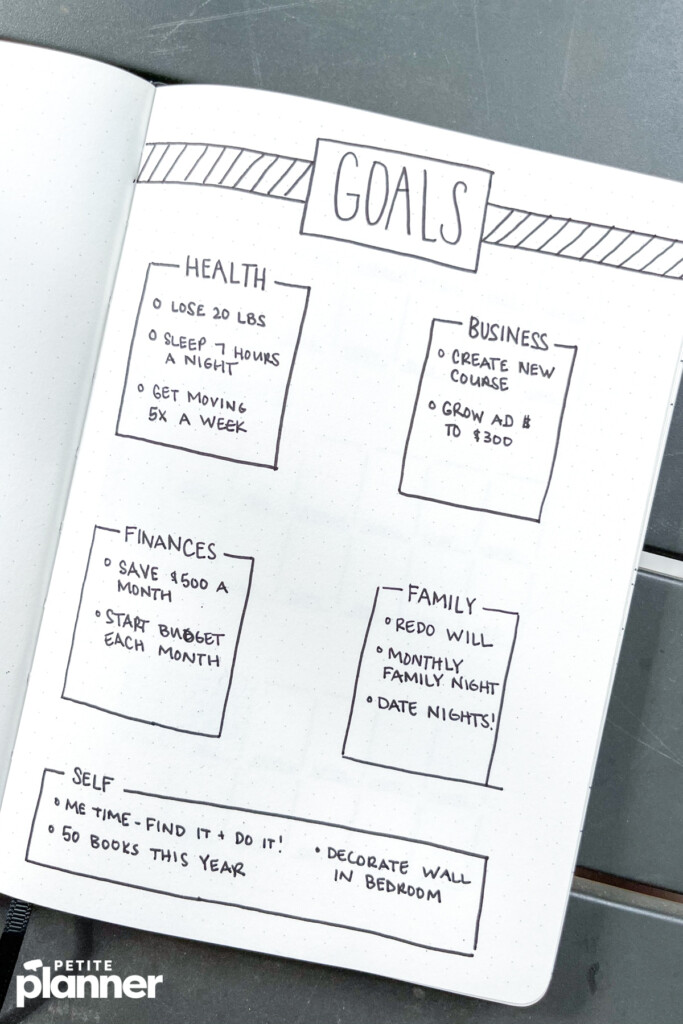 GOALS
HEALTH
LOSE 20 LBS
SLEEP 7 HOURS
A NIGHT
GET MOVING
5X A WEEK
BUSINESS
CREATE NEW
COURSE
GROW AD $
TO $300
FINANCES
SAVE $500 A
MONTH
START BUDGET
EACH MONTH
FAMILY
REDO WILL
MONTHLY
FAMILY NIGHT
DATE NIGHTS!
SELF
ME TIME - FIND IT + DO IT!
50 BOOKS THIS YEAR
DECORATE WALL
IN BEDROOM
PETITE
planner